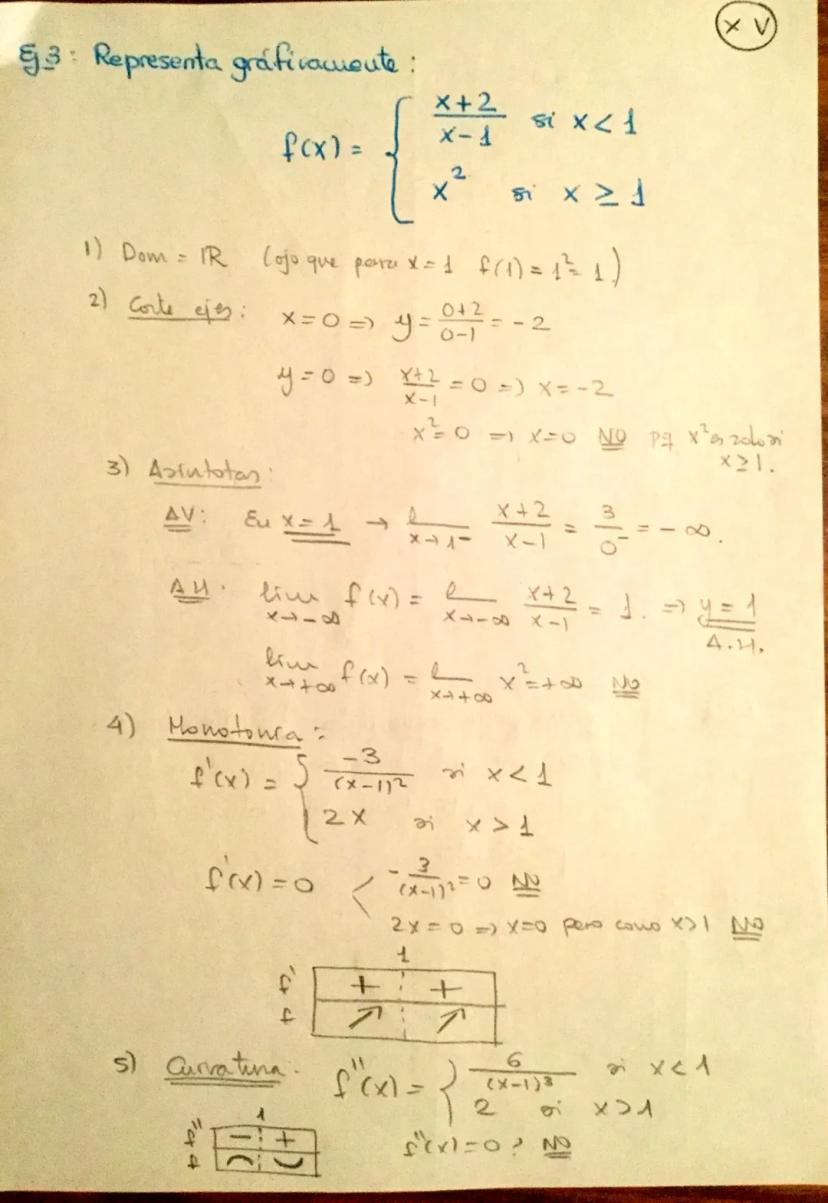 XV
Ej 3: Representa gráficamente:
f(x) = { x+2 / x-1 si x < 1
x² si x ≥ 1
1) Dom = IR (ojo que para x = 1 f(1) = 1² = 1)
2) Corte ejes: x=0 => y = 0+2 / 0-1 = -2
y=0 => x+2 / x-1 = 0 => x = -2
x² = 0 => x=0 NO pq x² es solo si
x ≥ 1.
3) Asíntotas:
AV: En x = 1 → l x→1⁻ x+2 / x-1 = 3 / 0⁻ = -∞.
AH. lim x→-∞ f(x) = l x→-∞ x+2 / x-1 = 1. => y = 1
A.H.
lim x→+∞ f(x) = l x→+∞ x² = +∞ No
4) Monotonía:
f'(x) = { -3 / (x-1)² si x < 1
2x si x > 1
f'(x) = 0 < -3 / (x-1)² = 0 No
2x = 0 => x=0 pero como x>1 No
1
f' + +
f ↗ ↗
5) Curvatura: f''(x) = { 6 / (x-1)³ si x < 1
2 si x > 1
1
f'' - +
f ⌒ ⌣
f''(x) = 0? No